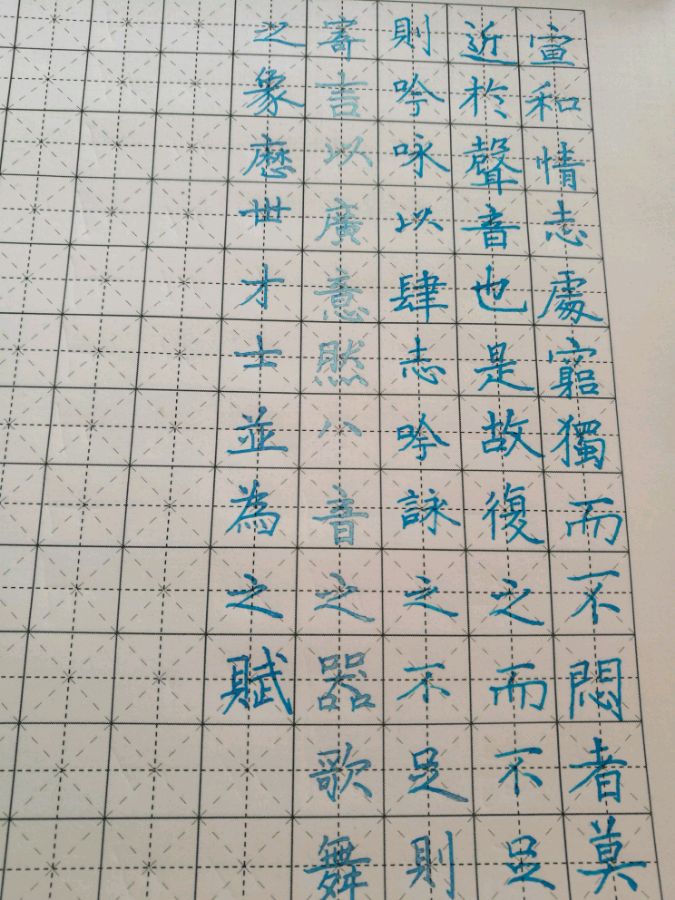 宣和情志處窮獨而不悶者莫
近於聲音也是故復之而不足
則吟咏以肆志吟詠之不足則
寄言以廣意然八音之器歌舞
之象歷世才士並為之賦